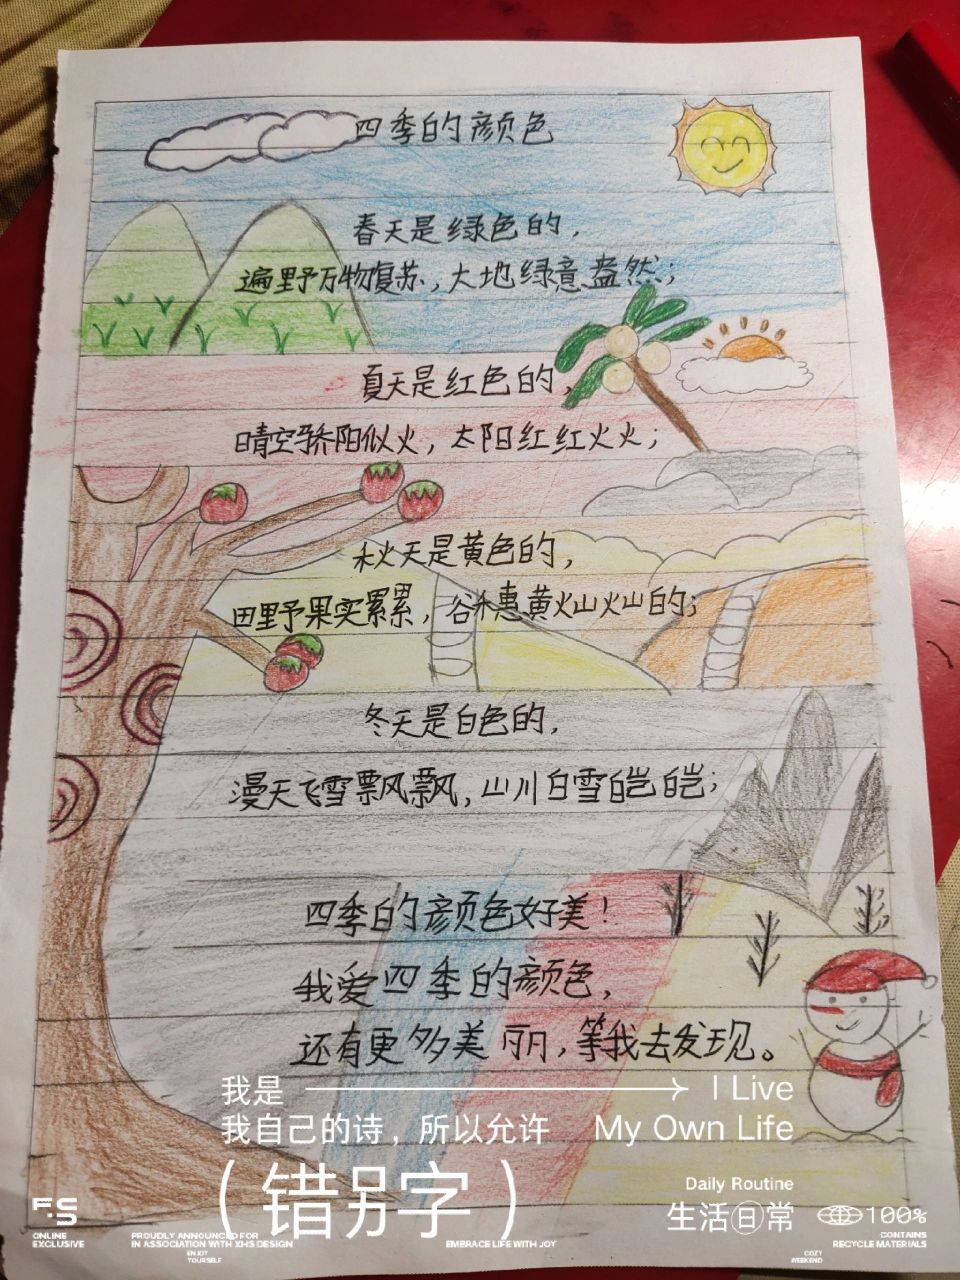 四季的颜色
春天是绿色的，
遍野万物复苏，大地绿意盎然；
夏天是红色的，
晴空骄阳似火，太阳红红火火；
秋天是黄色的，
田里予果实累累，谷禾惠黄灿灿的；
冬天是白色的，
漫天飞雪飘飘，山川白雪皑皑；
四季的颜色好美！
我爱四季的颜色，
还有更多美丽，等我去发现。
我是 I Live
我自己的诗，所以允许 My Own Life
（错别字）
Daily Routine
生活日常 100%
F.S
ONLINE
EXCLUSIVE
PROUDLY ANNOUNCED FOR
IN ASSOCIATION WITH XHS DESIGN
ENJOY
YOURSELF
EMBRACE LIFE WITH JOY
COZY
WEEKEND
CONTAINS
RECYCLE MATERIALS